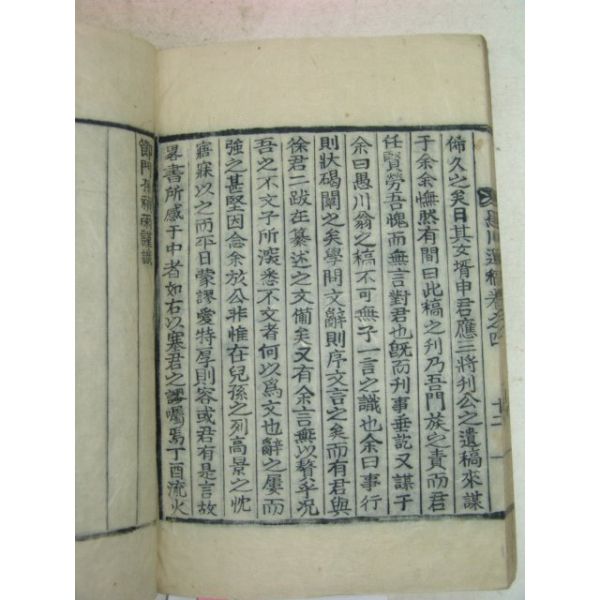 愚川遺稿卷之四 十二
俙久之矣日其女壻申君應三將刋公之遺稿來謀
于余余憮然有間曰此稿之刋乃吾門族之責而君
任賢勞吾愧而無言對君也旣而刋事垂訖又謀于
余曰愚川翁之稿不可無子一言之識也余曰事行
則狀碣闡之矣學問文辭則序文言之矣而有君與
徐君二跋在纂述之文備矣又有余言無以贅乎况
吾之不文子所深悉不文者何以爲文也辭之屢而
強之甚堅因念余於公非惟在兒孫之列高景之忱
寤寐以之而平日蒙謬愛特厚則容或君有是言故
畧書所感于中者如右以塞君之謬囑焉丁酉流火
節門 謹識